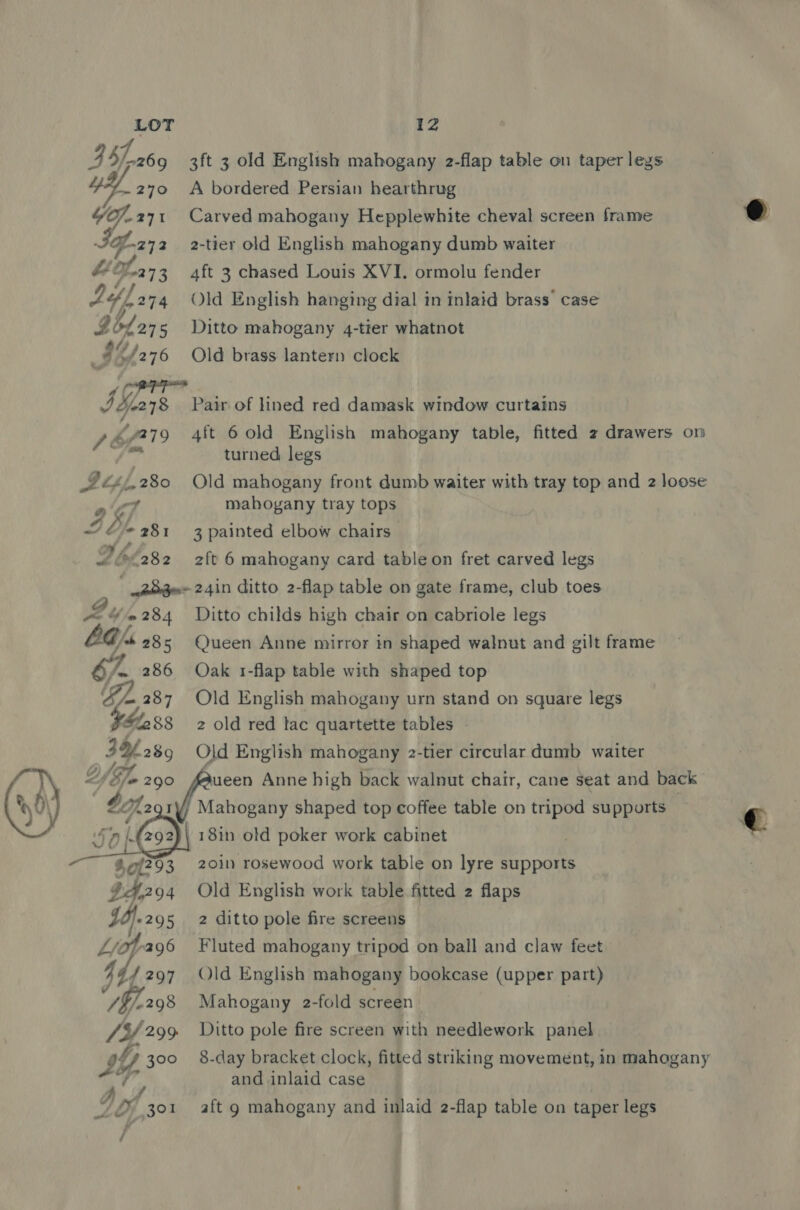 LOT 12
269 3ft 3 old English mahogany 2-flap table on taper legs
270 A bordered Persian hearthrug
271 Carved mahogany Hepplewhite cheval screen frame
272 2-tier old English mahogany dumb waiter
273 4ft 3 chased Louis XVI. ormolu fender
274 Old English hanging dial in inlaid brass case
275 Ditto mahogany 4-tier whatnot
276 Old brass lantern clock
277
278 Pair of lined red damask window curtains
279 4ft 6 old English mahogany table, fitted 2 drawers on
turned legs
280 Old mahogany front dumb waiter with tray top and 2 loose
mahogany tray tops
281 3 painted elbow chairs
282 2ft 6 mahogany card table on fret carved legs
283 24in ditto 2-flap table on gate frame, club toes
284 Ditto childs high chair on cabriole legs
285 Queen Anne mirror in shaped walnut and gilt frame
286 Oak 1-flap table with shaped top
287 Old English mahogany urn stand on square legs
288 2 old red lac quartette tables
289 Old English mahogany 2-tier circular dumb waiter
290 Queen Anne high back walnut chair, cane seat and back
291 Mahogany shaped top coffee table on tripod supports
292 18in old poker work cabinet
293 20in rosewood work table on lyre supports
294 Old English work table fitted 2 flaps
295 2 ditto pole fire screens
296 Fluted mahogany tripod on ball and claw feet
297 Old English mahogany bookcase (upper part)
298 Mahogany 2-fold screen
299 Ditto pole fire screen with needlework panel
300 8-day bracket clock, fitted striking movement, in mahogany
and inlaid case
301 2ft 9 mahogany and inlaid 2-flap table on taper legs